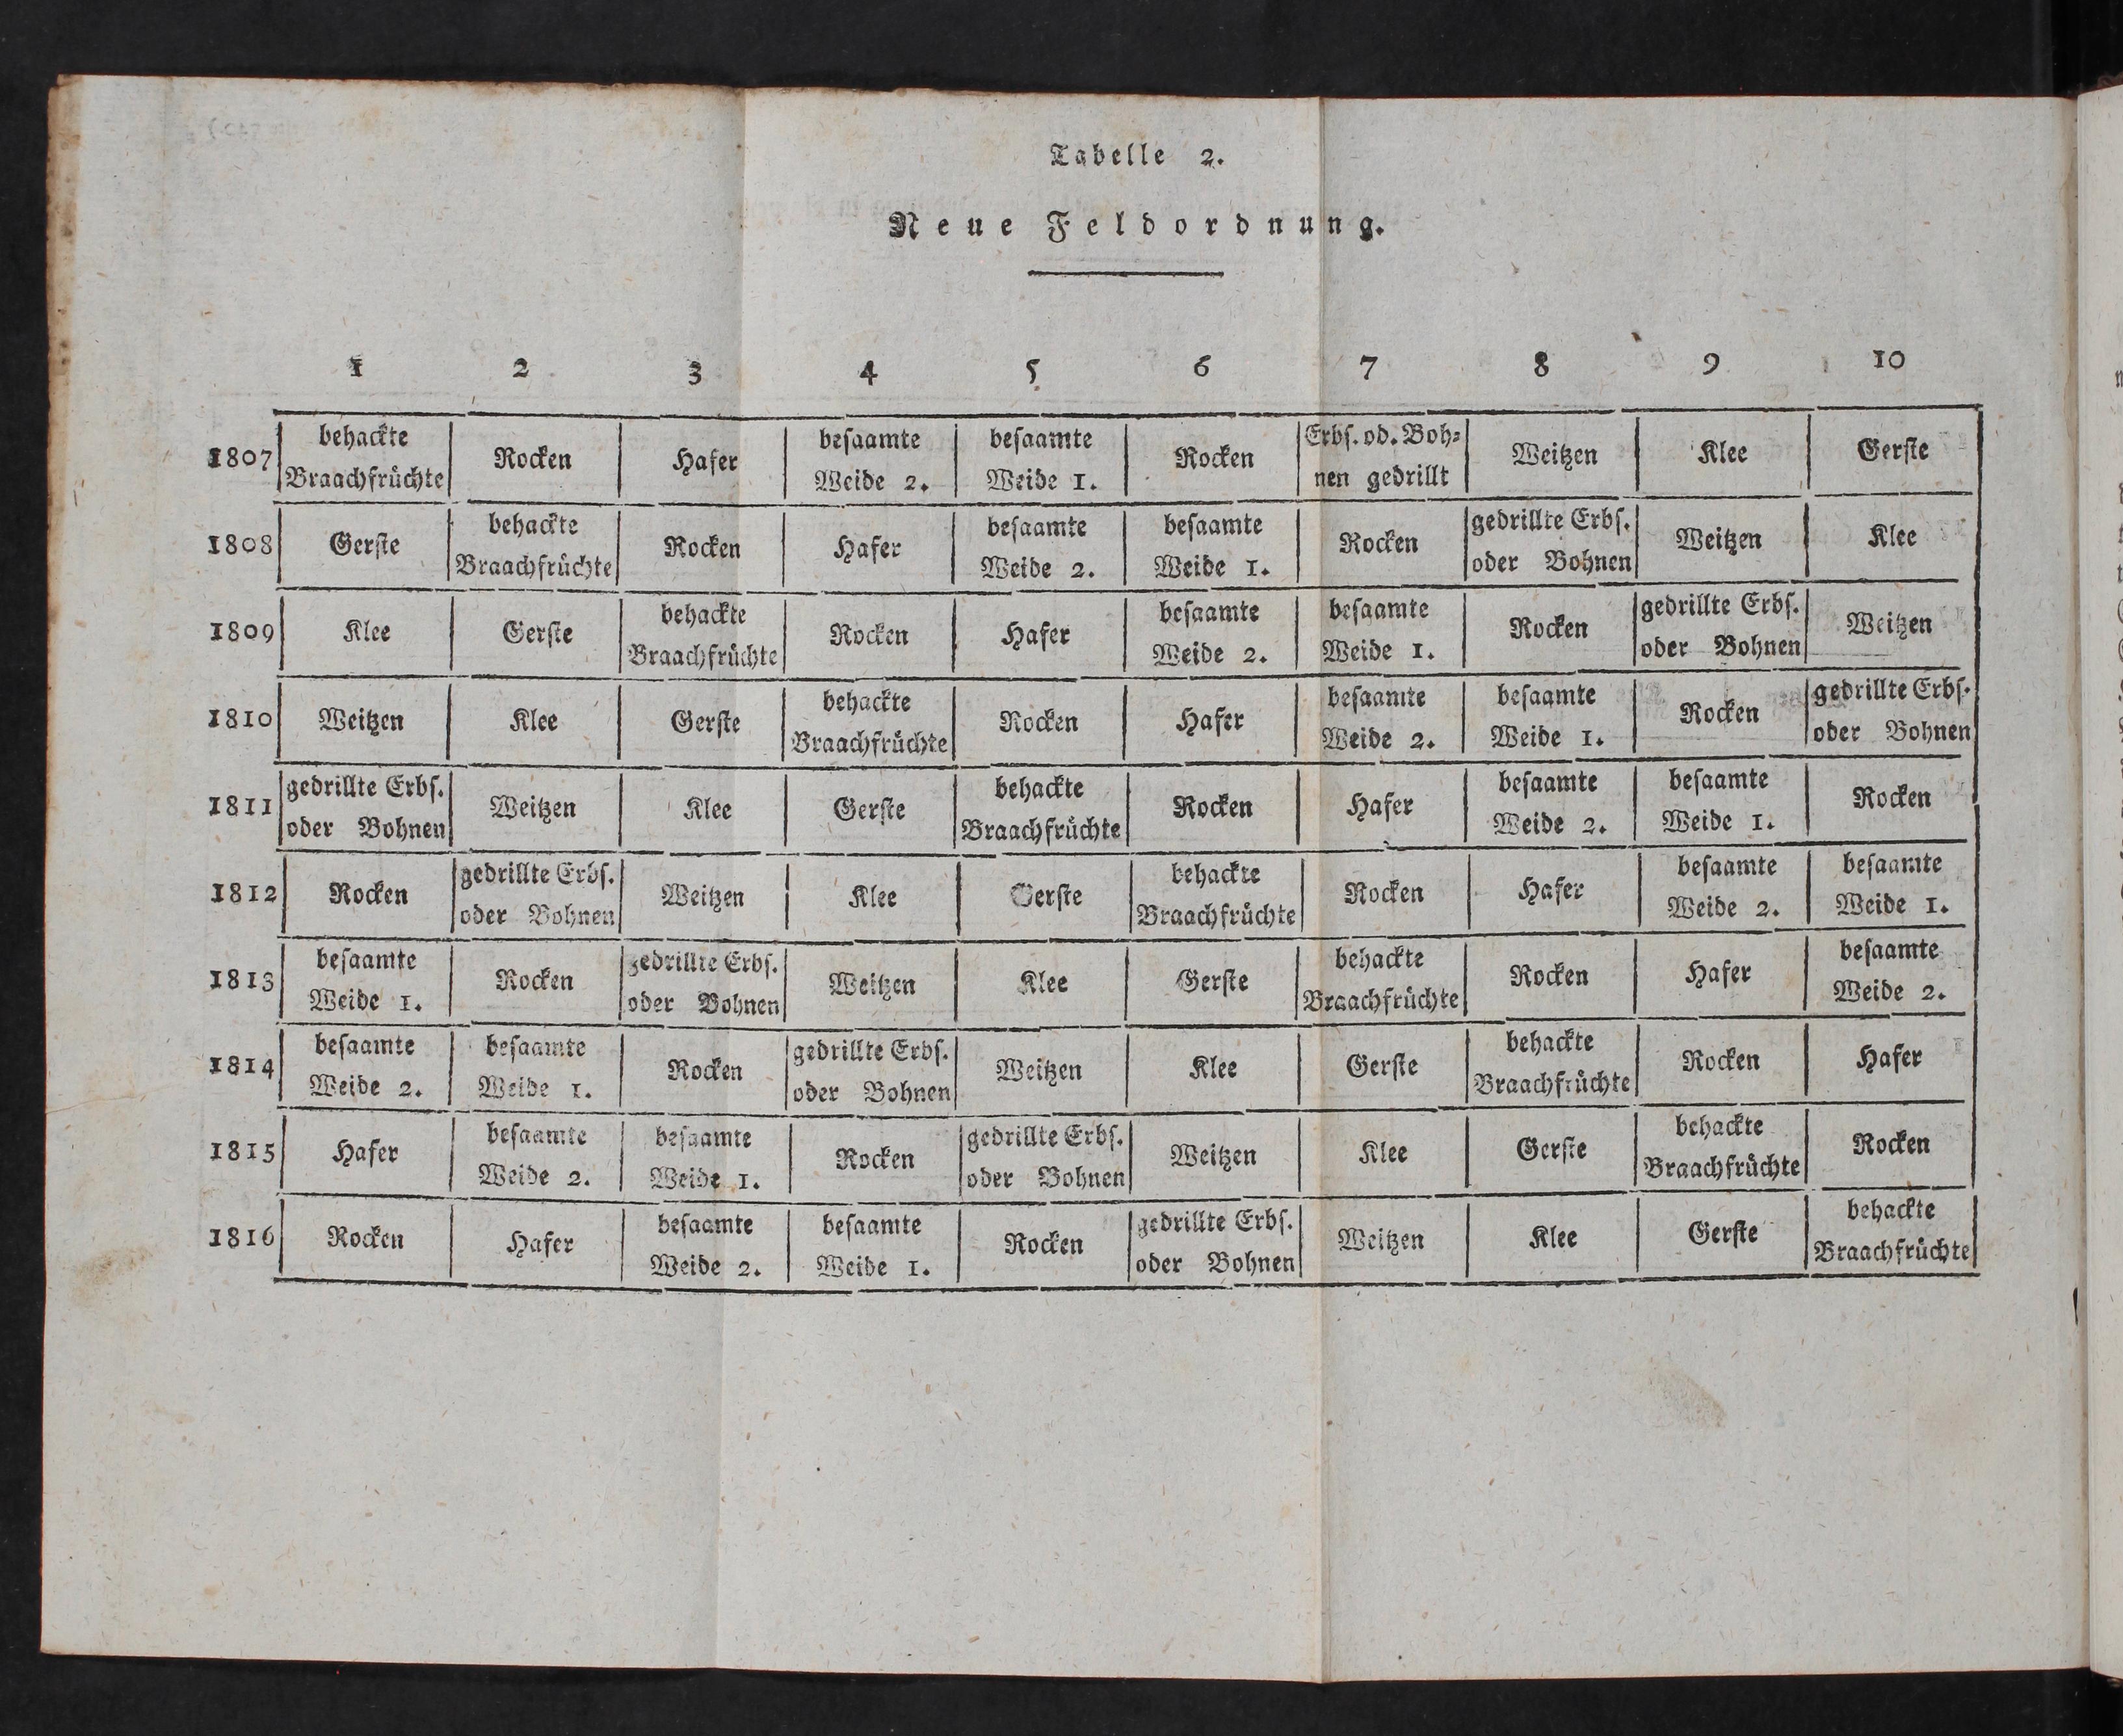 Tabelle 2.
Neue Feldordnung.
1 2 3 4 5 6 7 8 9 10
1807 behackte Braachfrüchte Rocken Hafer besaamte Weide 2. besaamte Weide 1. Rocken Erbs. od. Boh⸗nen gedrillt Weitzen Klee Gerste
1808 Gerste behackte Braachfrüchte Rocken Hafer besaamte Weide 2. besaamte Weide 1. Rocken gedrillte Erbs. oder Bohnen Weitzen Klee
1809 Klee Gerste behackte Braachfrüchte Rocken Hafer besaamte Weide 2. besaamte Weide 1. Rocken gedrillte Erbs. oder Bohnen Weitzen
1810 Weitzen Klee Gerste behackte Braachfrüchte Rocken Hafer besaamte Weide 2. besaamte Weide 1. Rocken gedrillte Erbs. oder Bohnen
1811 gedrillte Erbs. oder Bohnen Weitzen Klee Gerste behackte Braachfrüchte Rocken Hafer besaamte Weide 2. besaamte Weide 1. Rocken
1812 Rocken gedrillte Erbs. oder Bohnen Weitzen Klee Gerste behackte Braachfrüchte Rocken Hafer besaamte Weide 2. besaamte Weide 1.
1813 besaamte Weide 1. Rocken gedrillte Erbs. oder Bohnen Weitzen Klee Gerste behackte Braachfrüchte Rocken Hafer besaamte Weide 2.
1814 besaamte Weide 2. besaamte Weide 1. Rocken gedrillte Erbs. oder Bohnen Weitzen Klee Gerste behackte Braachfrüchte Rocken Hafer
1815 Hafer besaamte Weide 2. besaamte Weide 1. Rocken gedrillte Erbs. oder Bohnen Weitzen Klee Gerste behackte Braachfrüchte Rocken
1816 Rocken Hafer besaamte Weide 2. besaamte Weide 1. Rocken gedrillte Erbs. oder Bohnen Weitzen Klee Gerste behackte Braachfrüchte